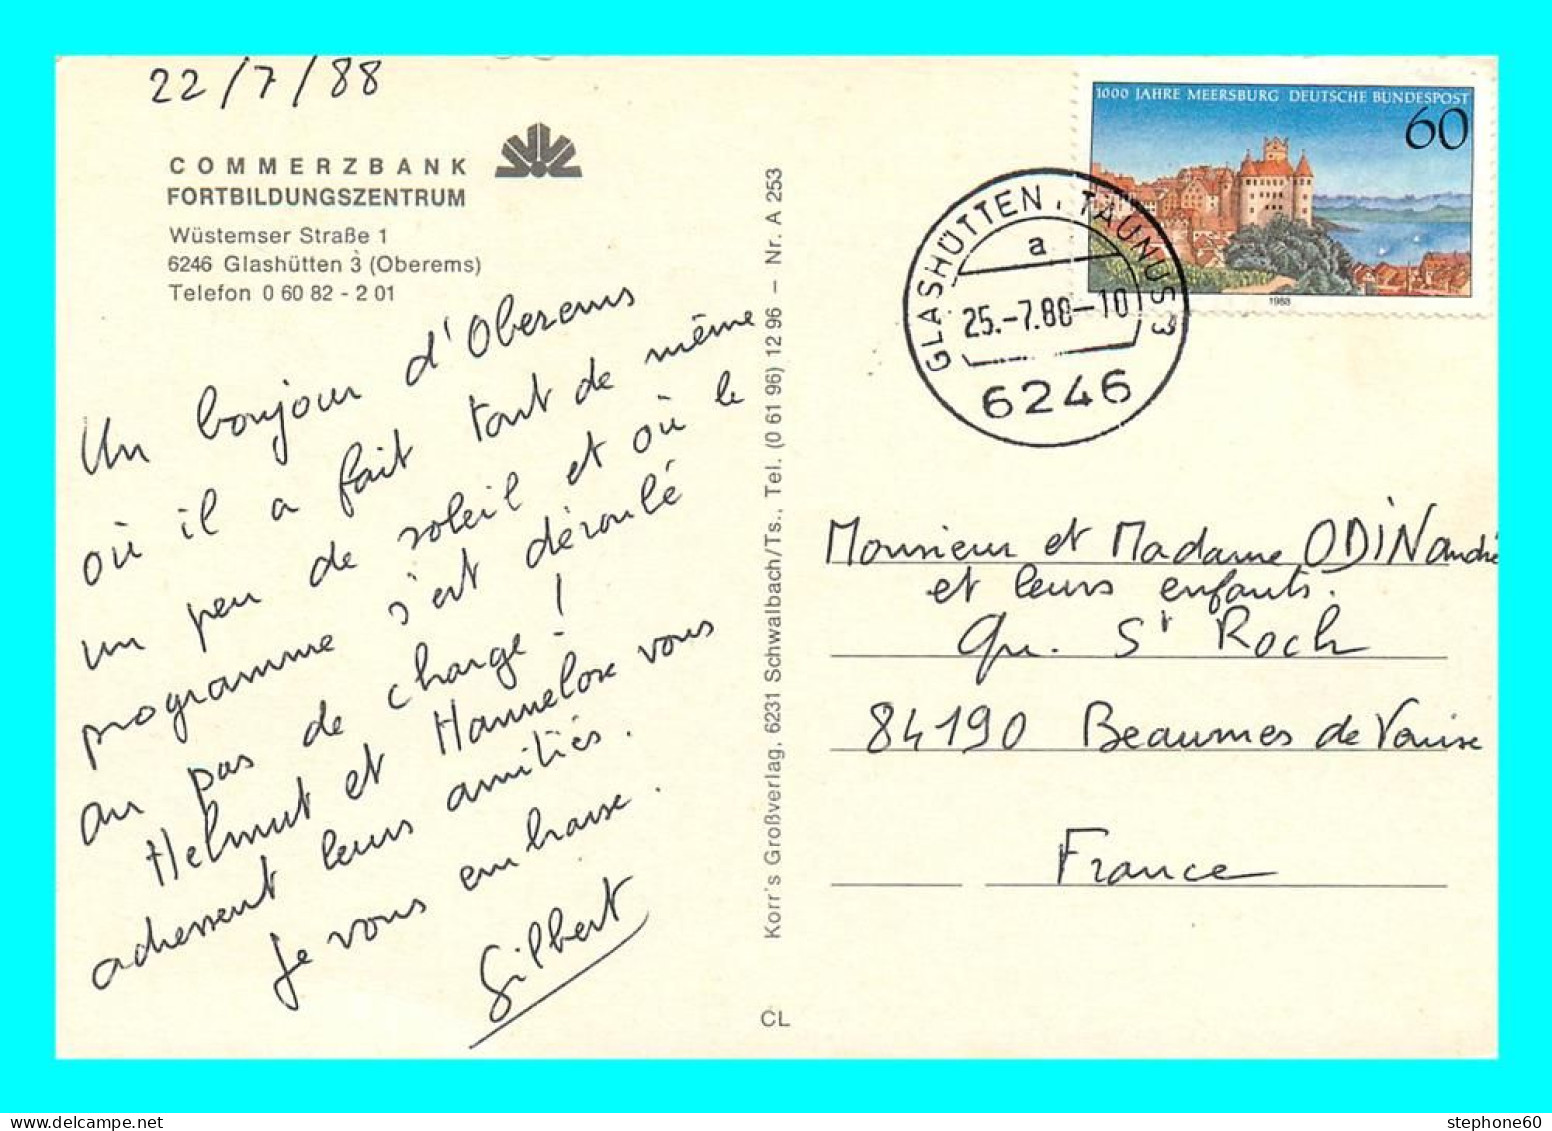 22/7/88
COMMERZBANK
FORTBILDUNGSZENTRUM
Wüstemser Straße 1
6246 Glashütten 3 (Oberems)
Telefon 0 60 82 - 2 01
Un bonjour d'Oberems
où il a fait tout de même
un peu de soleil et où le
programme s'est déroulé
au pas de charge !
Helmut et Hannelore vous
adressent leurs amitiés.
Je vous embrasse.
Gilbert
Korr's Großverlag, 6231 Schwalbach/Ts., Tel. (0 61 96) 12 96 – Nr. A 253
CL
1000 JAHRE MEERSBURG DEUTSCHE BUNDESPOST
60
1988
GLASHÜTTEN, TAUNUS 3
a
25.-7.88-10
6246
Monsieur et Madame ODIN andré
et leurs enfants.
Qu. St Roch
84190 Beaumes de Venise
France
stephone60